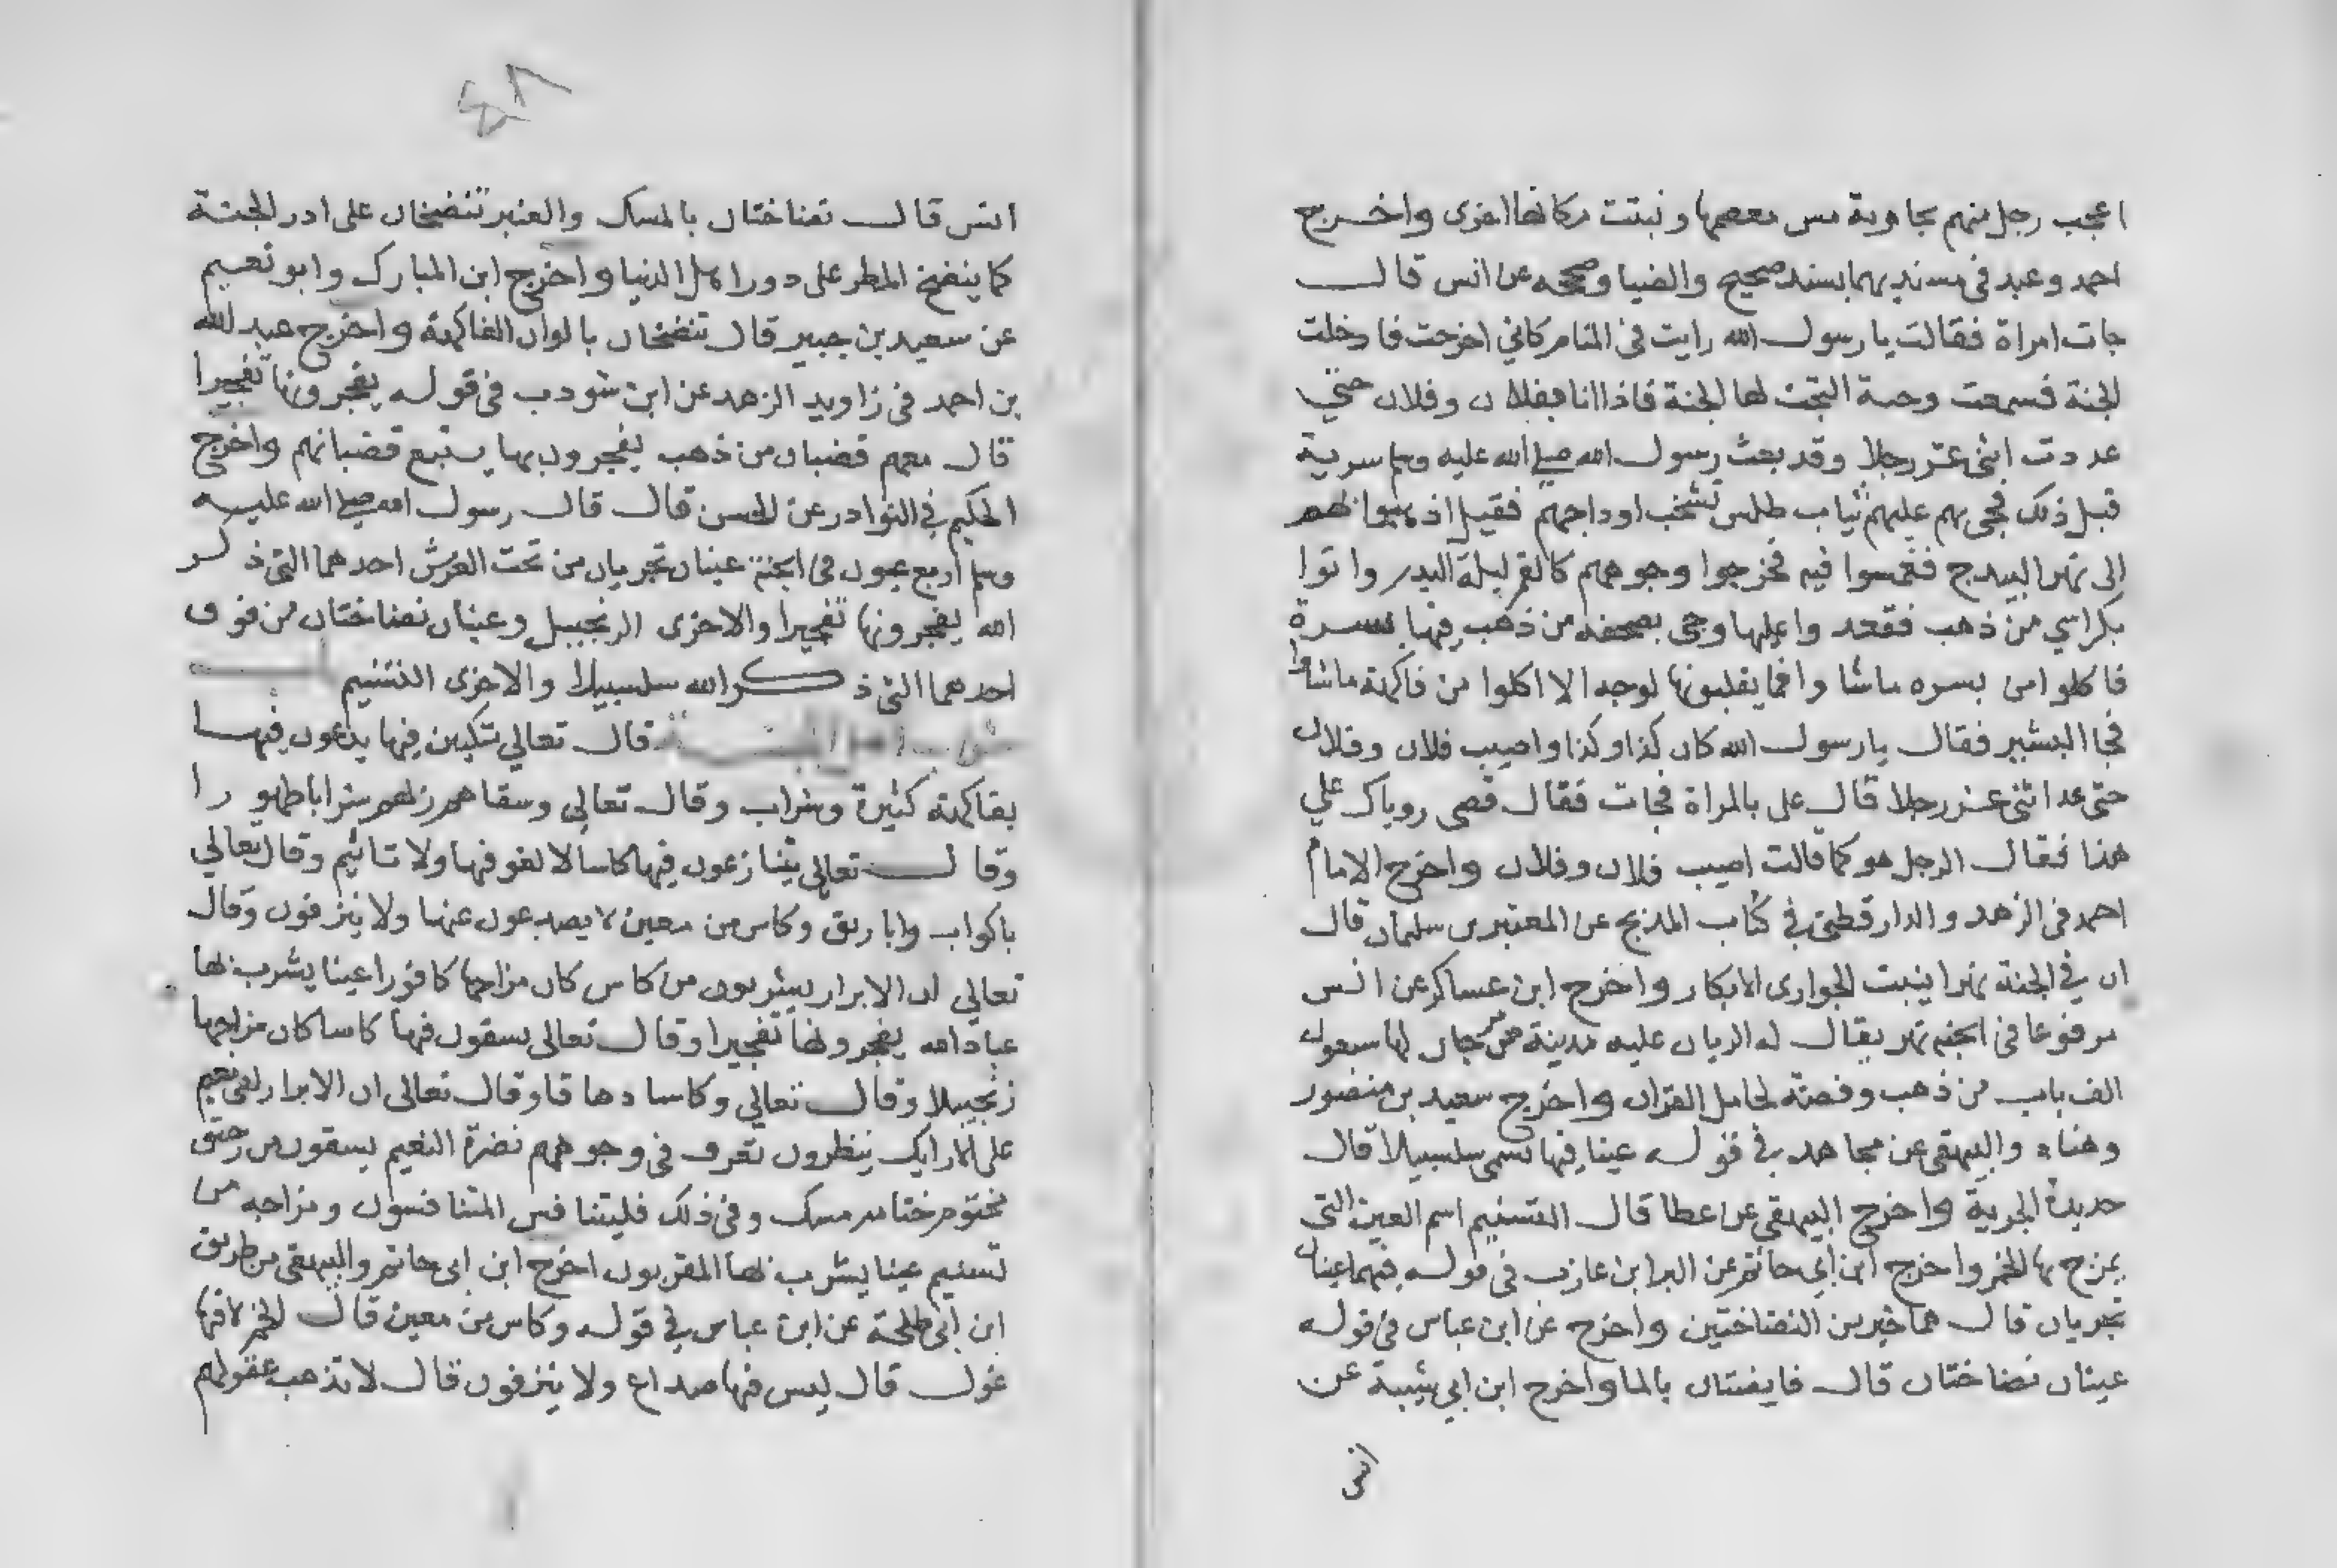 اعجب رجل منهم بجارية مس معصمها ونبتت مكانها اخرى واخرج
احمد وعبد فى مسنديهما بسند صحيح والضيا وصححه عن انس قال
جات امراة فقالت يا رسول الله رايت فى المنام كاني اخرجت فادخلت
الجنة فسمعت وجبة التجت لها الجنة فاذا انا بفلان وفلان حتى
عددت اثنى عشر رجلا وقد بعث رسول الله صلى الله عليه وسلم سرية
قبل ذلك فجى بهم عليهم ثياب طلس تشخب اوداجهم فقيل اذهبوا بهم
الى نهر البيدج فغمسوا فيه فخرجوا وجوههم كالقمر ليلة البدر واتوا
بكراسي من ذهب فقعدوا عليها وجى بصحفه من ذهب فيها بسرة
فاكلوا من بسره ماشا وا فما يقلبونها لوجه الا اكلوا من فاكهة ماشاوا
فجا البشير فقال يا رسول الله كان كذا وكذا واصيب فلان وفلان
حتى عد اثنى عشر رجلا قال على بالمراة فجات فقال قصى روياك علي
هذا فقال الرجل هو كما قالت اصيب فلان وفلان واخرج الامام
احمد فى الزهد والدارقطنى في كتاب المدبج عن المعتبر بن سليمان قال
ان في الجنة نهرا ينبت الجوارى الابكار واخرج ابن عساكر عن انس
مرفوعا فى الجنه نهر يقال له الريان عليه مدينة من مرجان لها سبعون
الف باب من ذهب وفضة لحامل القران واخرج سعيد بن منصور
وهناد والبيهقى عن مجاهد في قوله عينا فيها تسمى سلسبيلا قال
حديدة الجرية واخرج البيهقي عن عطا قال التسنيم اسم العين التى
يمزج بها الخمر واخرج ابن ابي حاتم عن البرا بن عازب فى قوله فيهما عينان
تجريان قال هما خير من النضاختين واخرج عن ابن عباس فى قوله
عينان نضاختان قال فايضتان بالما واخرج ابن ابي شيبة عن
انس
انس قال نضاختان بالمسك والعنبر تنضخان على ادر الجنة
كما ينضخ المطر على دور اهل الدنيا واخرج ابن المبارك وابو نعيم
عن سعيد بن جبير قال تنضخان بالوان الفاكهة واخرج عبد الله
بن احمد فى زاويد الزهد عن ابن شودب فى قوله يفجرونها تفجيرا
قال معهم قضبان من ذهب يفجرون بها يستبع قضبانهم واخرج
الحكيم في النوادر عن الحسن قال قال رسول الله صلى الله عليه
وسلم اربع عيون فى الجنة عينان تجريان من تحت العرش احدهما التى ذكر
الله يفجرونها تفجيرا والاخرى الزنجبيل وعينان نضاختان من فوق
احدهما التى ذكر الله سلسبيلا والاخرى التسنيم باب
شراب اهل الجنة قال تعالي متكين فيها يدعون فيها
بفاكهة كثيرة وشراب وقال تعالى وسقاهم ربهم شرابا طهورا
وقال تعالى يتنازعون فيها كاسا لا لغو فيها ولا تاثيم وقال تعالي
باكواب واباريق وكاس من معين لا يصدعون عنها ولا ينزفون وقال
تعالي ان الابرار يشربون من كاس كان مزاجها كافورا عينا يشرب بها
عباد الله يفجرونها تفجيرا وقال تعالى يسقون فيها كاسا كان مزاجها
زنجبيلا وقال تعالي وكاسا دهاقا وقال تعالى ان الابرار لفى نعيم
على الارايك ينظرون تعرف فى وجوههم نضرة النعيم يسقون من رحيق
مختوم ختامه مسك وفى ذلك فليتنافس المتنافسون ومزاجه من
تسنيم عينا يشرب بها المقربون اخرج ابن ابى حاتم والبيهقى من طريق
ابن ابى طلحة عن ابن عباس في قوله وكاس من معين قال الخمر لا فيها
غول قال ليس فيها صداع ولا ينزفون قال لا تذهب عقولهم